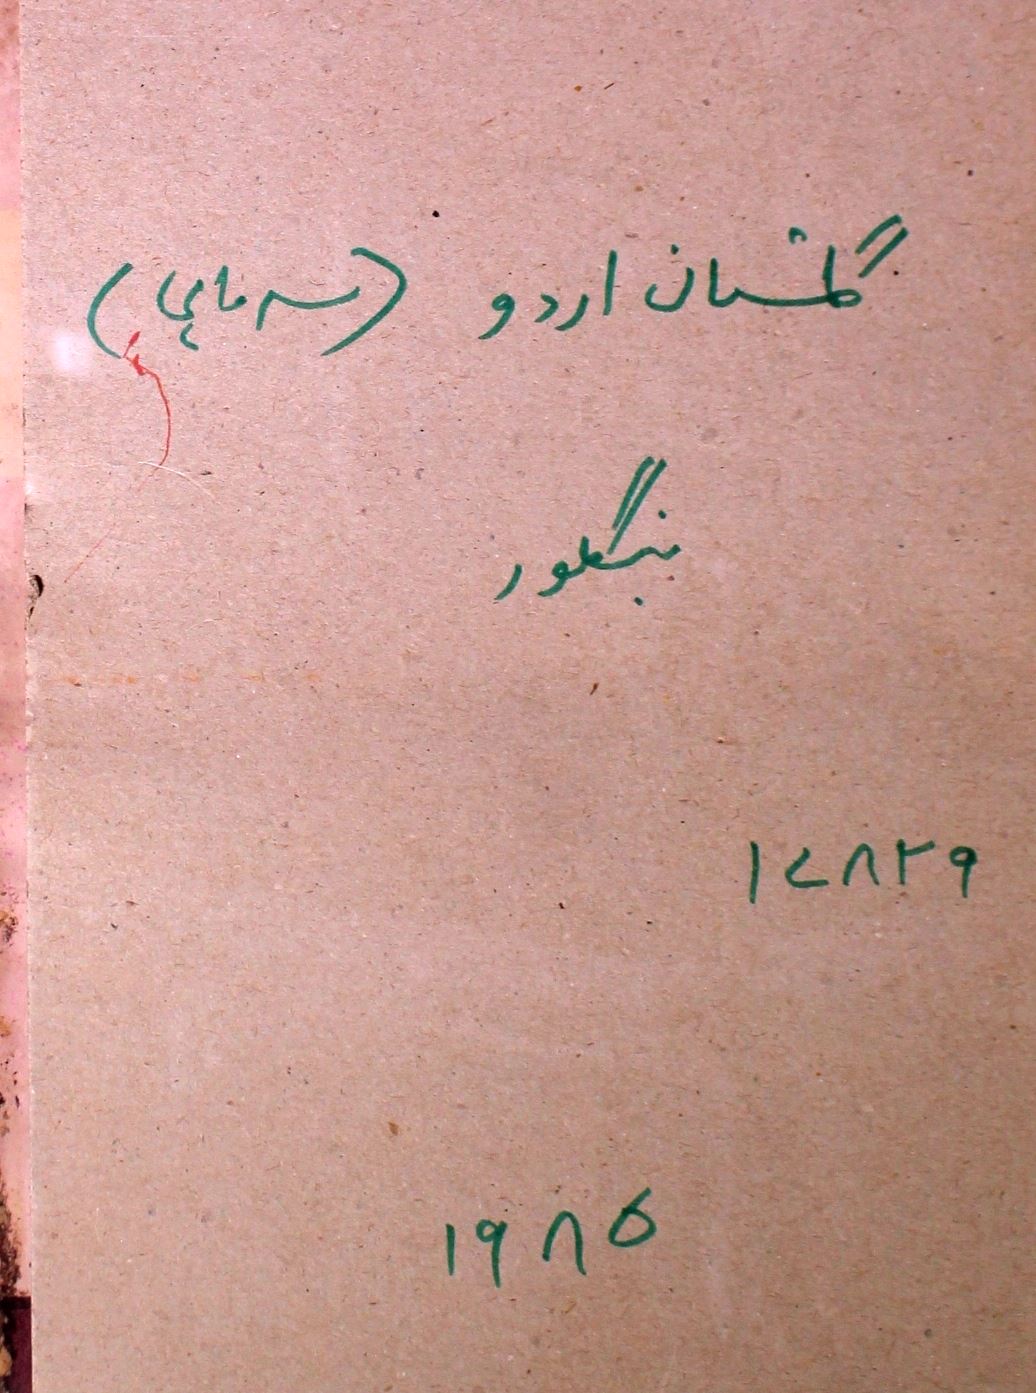 گلستان اردو (سہ ماہی)
بنگلور
۱۷۸۲۹
۱۹۸۵